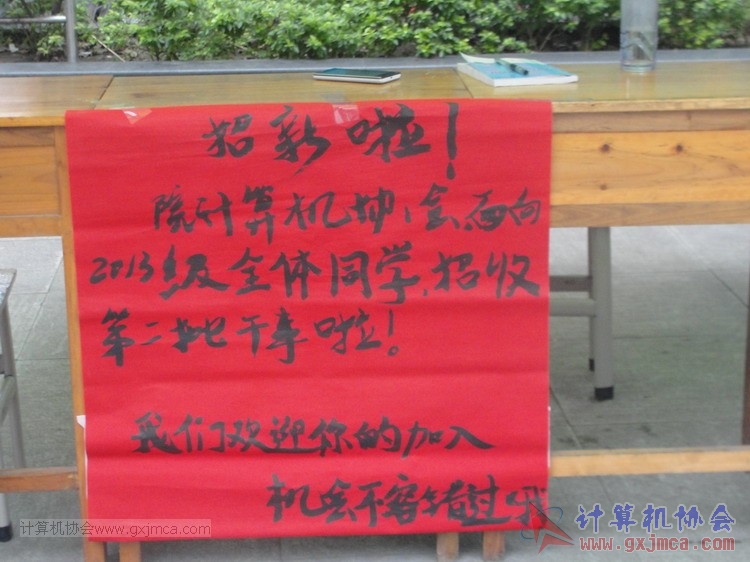 招新啦！
院计算机协会面向
2013级全体同学，招收
第二批干事啦！
我们欢迎你的加入
机会不容错过哦
计算机协会www.gxjmca.com
计算机协会
www.gxjmca.com